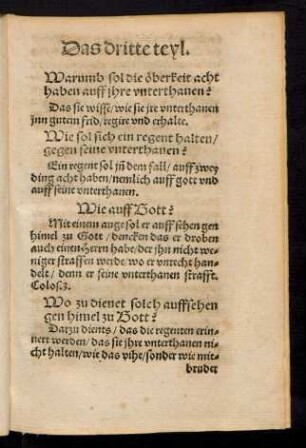 Das dritte teyl.
Warumb sol die öberkeit acht
haben auff jhre vnterthanen?
Das sie wisse/wie sie jre vnterthanen
jnn gutem frid/regire vnd erhalte.
Wie sol sich ein regent halten/
gegen seine vnterthanen?
Ein regent sol jn̄ dem fall/auff zwey
ding acht haben/nemlich auff gott vnd
auff seine vnterthanen.
Wie auff Gott?
Mit einem auge sol er auff sehen gen
himel zu Gott/dencken das er droben
auch einen Herrn habe/der jhn nicht we-
niger straffen werde wo er vnrecht han-
delt/denn er seine vnterthanen strafft.
Colos.3.
Wo zu dienet solch auffsehen
gen himel zu Gott?
Darzu dients/das die regenten erin-
nert werden/das sie jhre vnterthanen ni-
cht halten/wie das vihe/sonder wie mit-
bruder